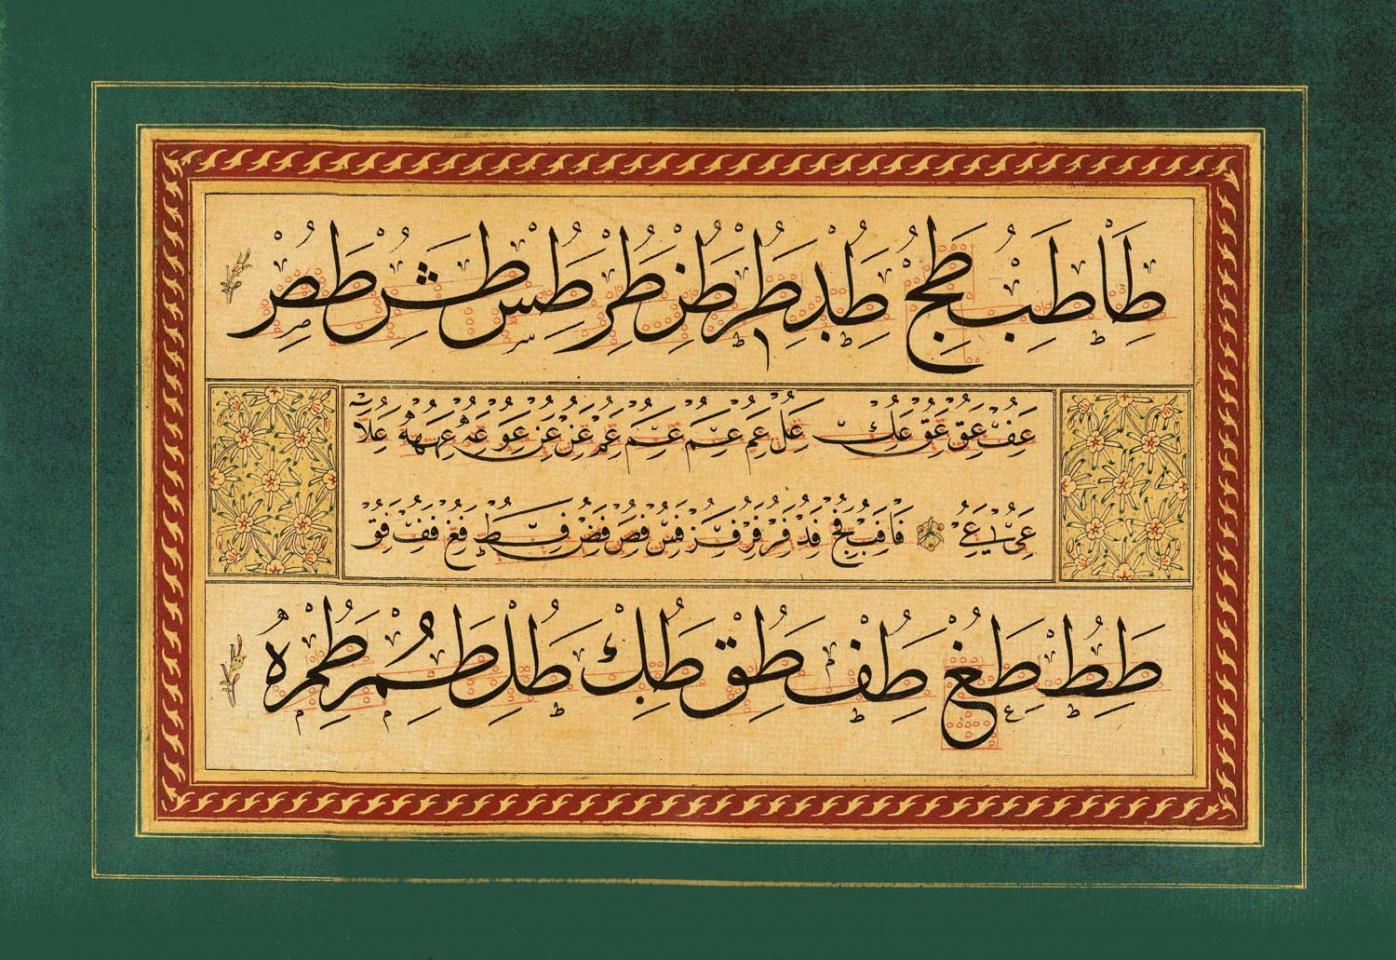 طا طب طج طد طر طر طر طس طس طص
عف عق عق عك عل عم عم عم عم عن عن عو عه عهه علا
عى عى فا فب فج فد فر فر فن فس فص فص فط فع فف فق
طط طع طف طق طك طل طم طمره